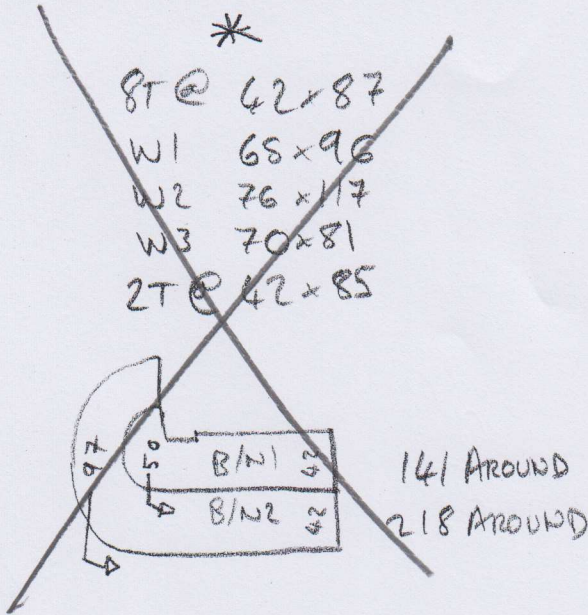 *
8T @ 42 x 87
W1 65 x 96
W2 76 x 117
W3 70 x 81
2T @ 42 x 85
97
50
B/N1 42
B/N2 42
141 AROUND
218 AROUND